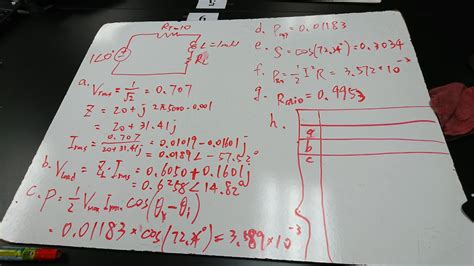 6
R_T=10
1∠0°
L=1mH
a. V_rms = 1/√2 = 0.707
Z = 20+j 2π5000·0.001
= 20+31.41j
I_rms = 0.707/(20+31.41j) = 0.01019-0.01601j
= 0.0189∠-57.52°
b. V_load = Z_L I_rms = 0.6050+0.1601j
= 0.6258∠14.82°
c. P = 1/2 V_max I_max cos(θ_v-θ_i)
= 0.01183 × cos(72.34°) = 3.589×10^-3
d. P = 0.01183
e. = cos(72.34°) = 0.3034
f. = 1/2 I²R = 3.572×10^-3
g. Ratio = 0.9953
h.
a
b
c